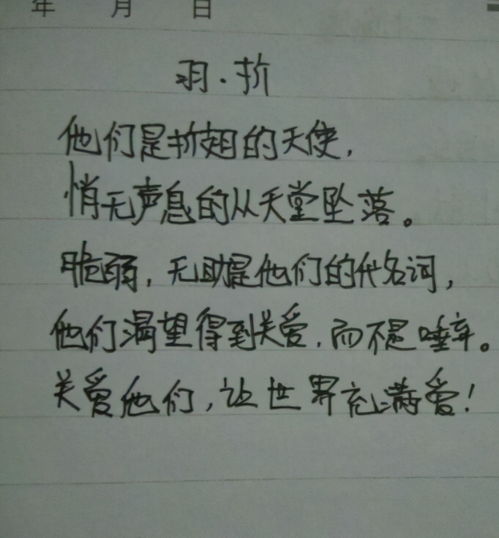 年 月 日
羽·折
他们是折翅的天使，
悄无声息的从天堂坠落。
脆弱，无助是他们的代名词，
他们渴望得到关爱，而不是唾弃。
关爱他们，让世界充满爱！